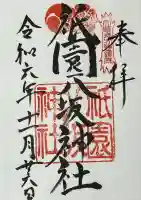 奉拝
祇園八坂神社
令和六年十一月廿六日
祇園
神社